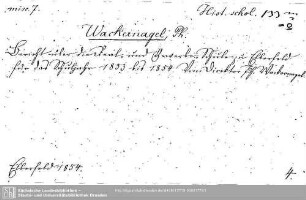 misc. 7. Hist. schol. 133 m
Wackernagel, Ph.
Bericht über die Real- und Gewerbe Schule zu Elberfeld
für das Schuljahr 1853 bis 1854 Vom Direktor Ph. Wackernagel.
Elberfeld 1854. 4.
Sächsische Landesbibliothek -
Staats- und Universitätsbibliothek Dresden